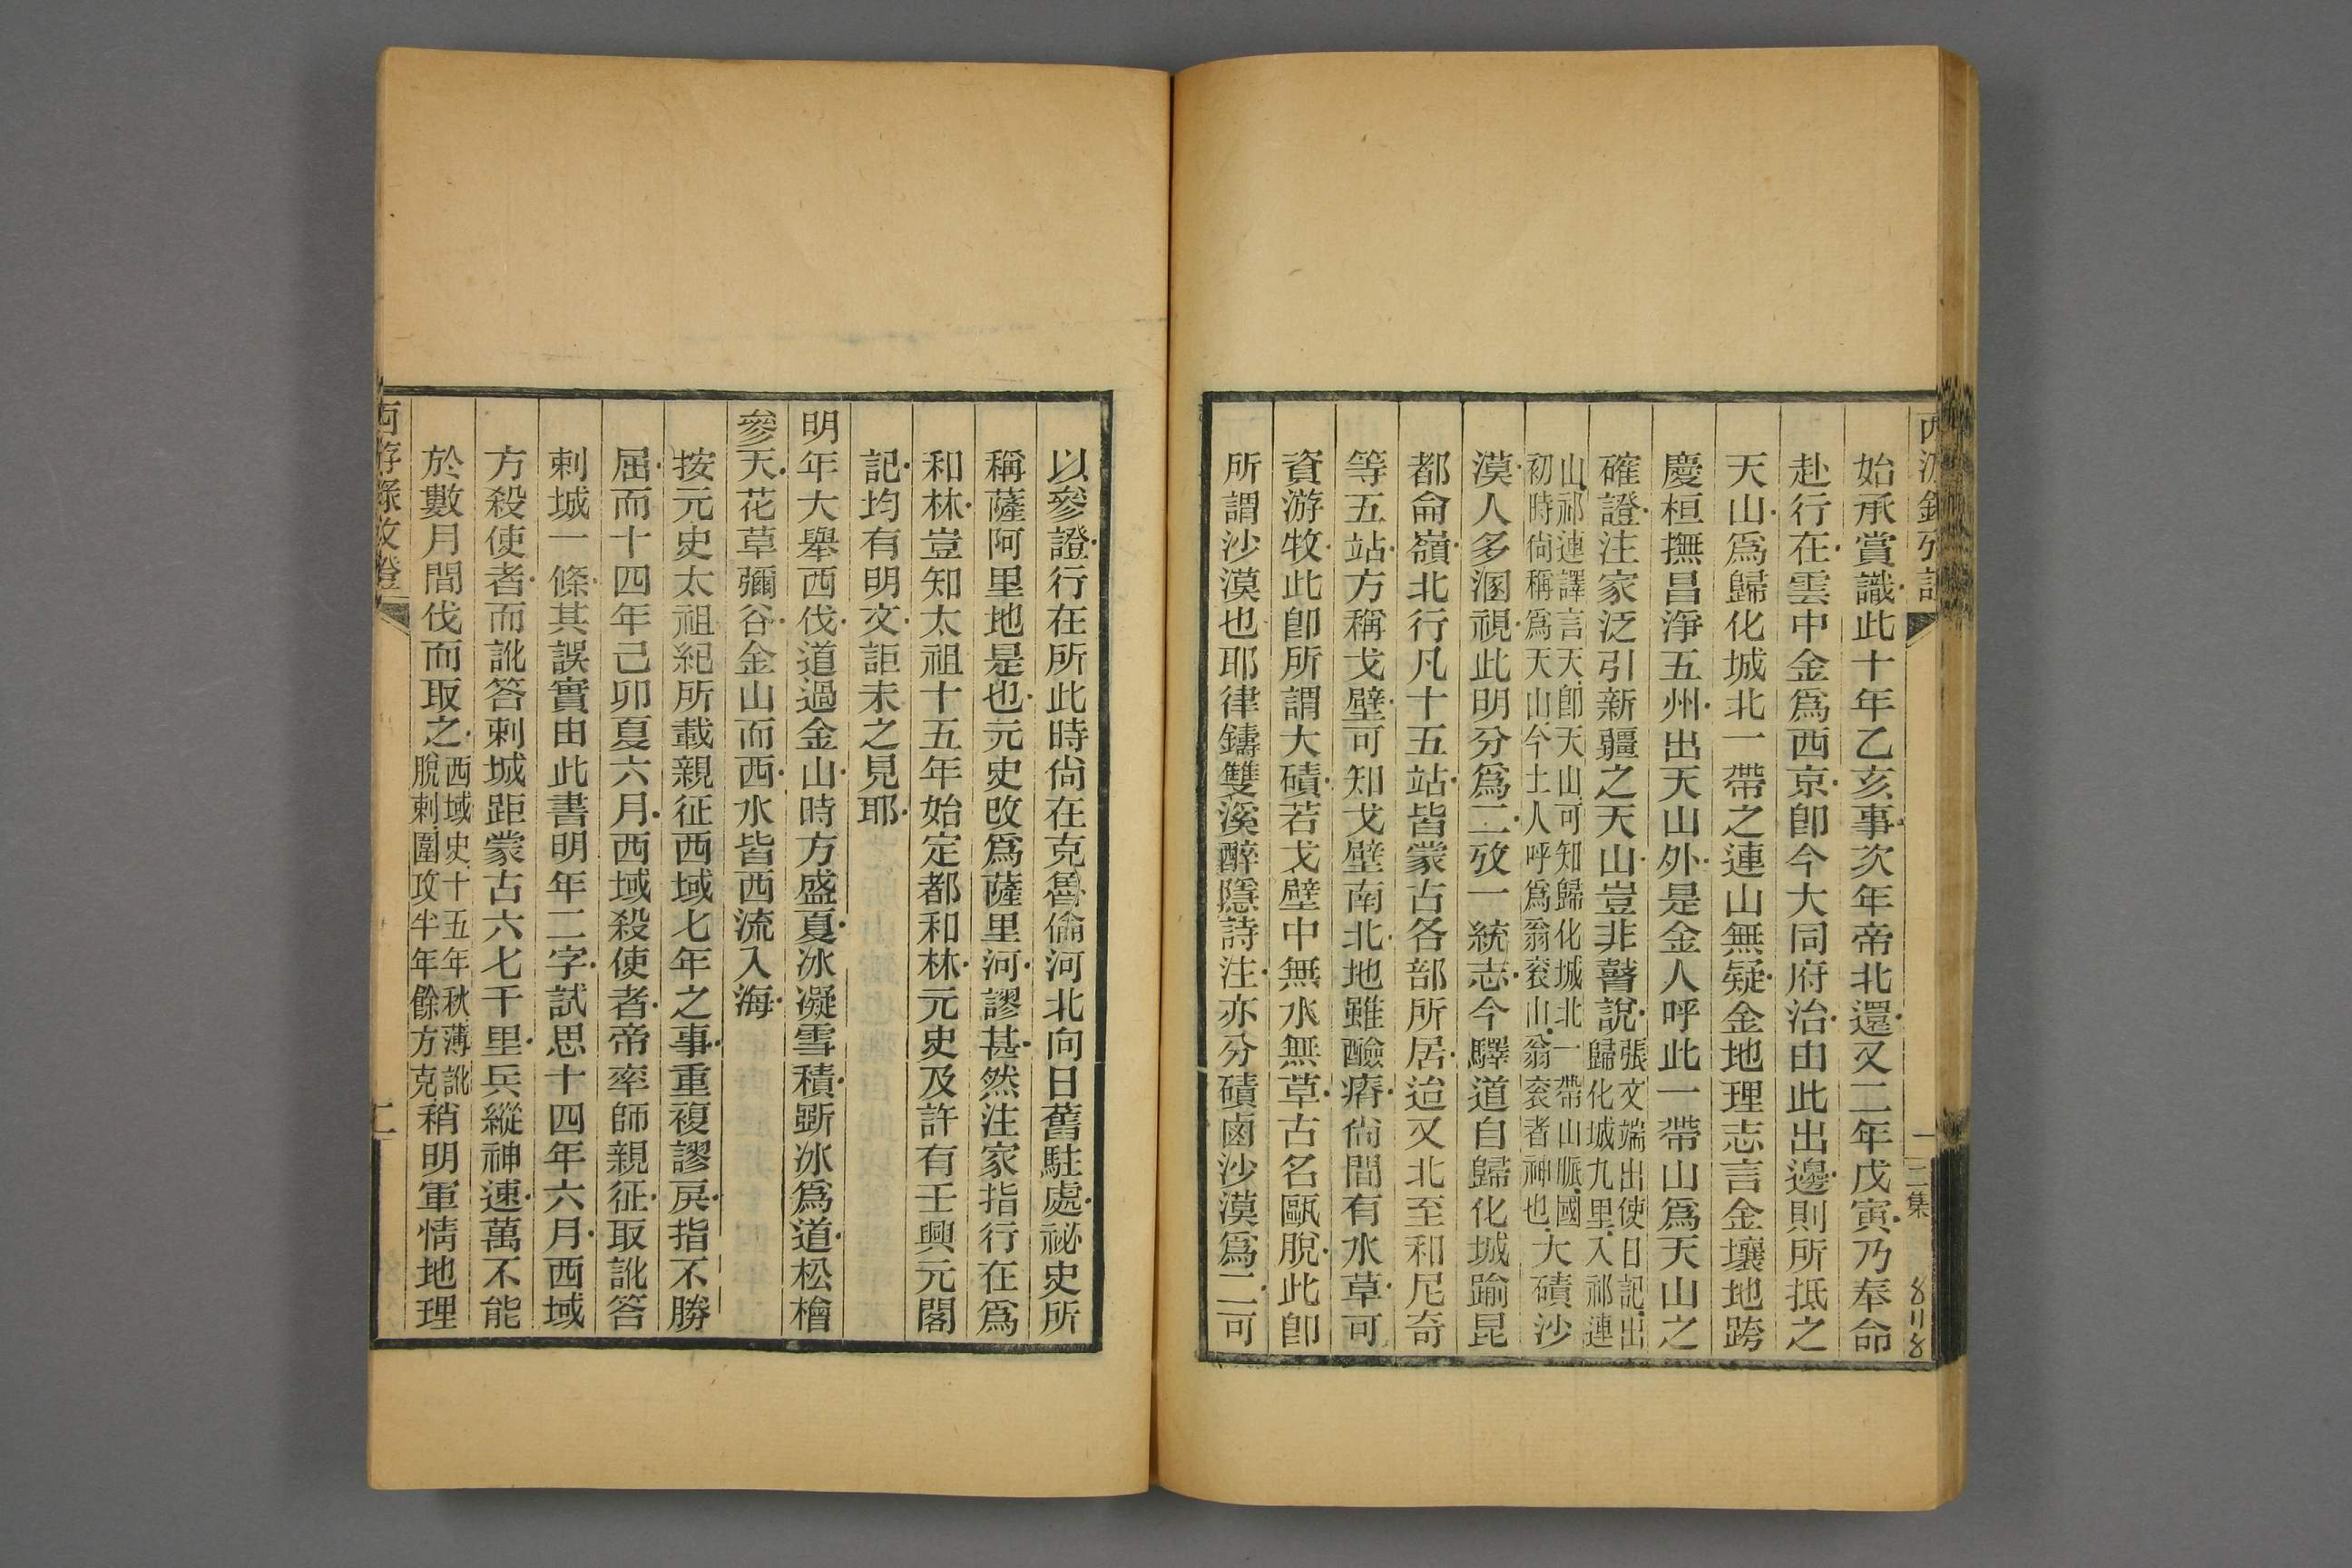 始承賞識此十年乙亥事次年帝北還又二年戊寅乃奉命
赴行在雲中金爲西京卽今大同府治由此出邊則所抵之
天山爲歸化城北一帶之連山無疑金地理志言金壤地跨
慶桓撫昌淨五州出天山外是金人呼此一帶山爲天山之
確證注家泛引新疆之天山豈非瞽說張文端出使日記出
歸化城九里入祁連
山祁連譯言天卽天山可知歸化城北一帶山脈國
初時尙稱爲天山今土人呼爲翁袞山翁袞者神也大磧沙
漠人多溷視此明分爲二攷一統志今驛道自歸化城踰昆
都侖嶺北行凡十五站皆蒙古各部所居迨又北至和尼奇
等五站方稱戈壁可知戈壁南北地雖鹼瘠尙間有水草可
資游牧此卽所謂大磧若戈壁中無水無草古名甌脫此卽
所謂沙漠也耶律鑄雙溪醉隱詩注亦分磧鹵沙漠爲二可
二集
以參證行在所此時尙在克魯倫河北向日舊駐處祕史所
稱薩阿里地是也元史改爲薩里河謬甚然注家指行在爲
和林豈知太祖十五年始定都和林元史及許有壬興元閣
記均有明文詎未之見耶
明年大舉西伐道過金山時方盛夏冰凝雪積斲冰爲道松檜
參天花草彌谷金山而西水皆西流入海
按元史太祖紀所載親征西域七年之事重複謬戾指不勝
屈而十四年己卯夏六月西域殺使者帝率師親征取訛答
剌城一條其誤實由此書明年二字試思十四年六月西域
方殺使者而訛答剌城距蒙古六七千里兵縱神速萬不能
於數月間伐而取之西域史十五年秋薄訛
脫剌圍攻半年餘方克稍明軍情地理
西游錄攷證
二